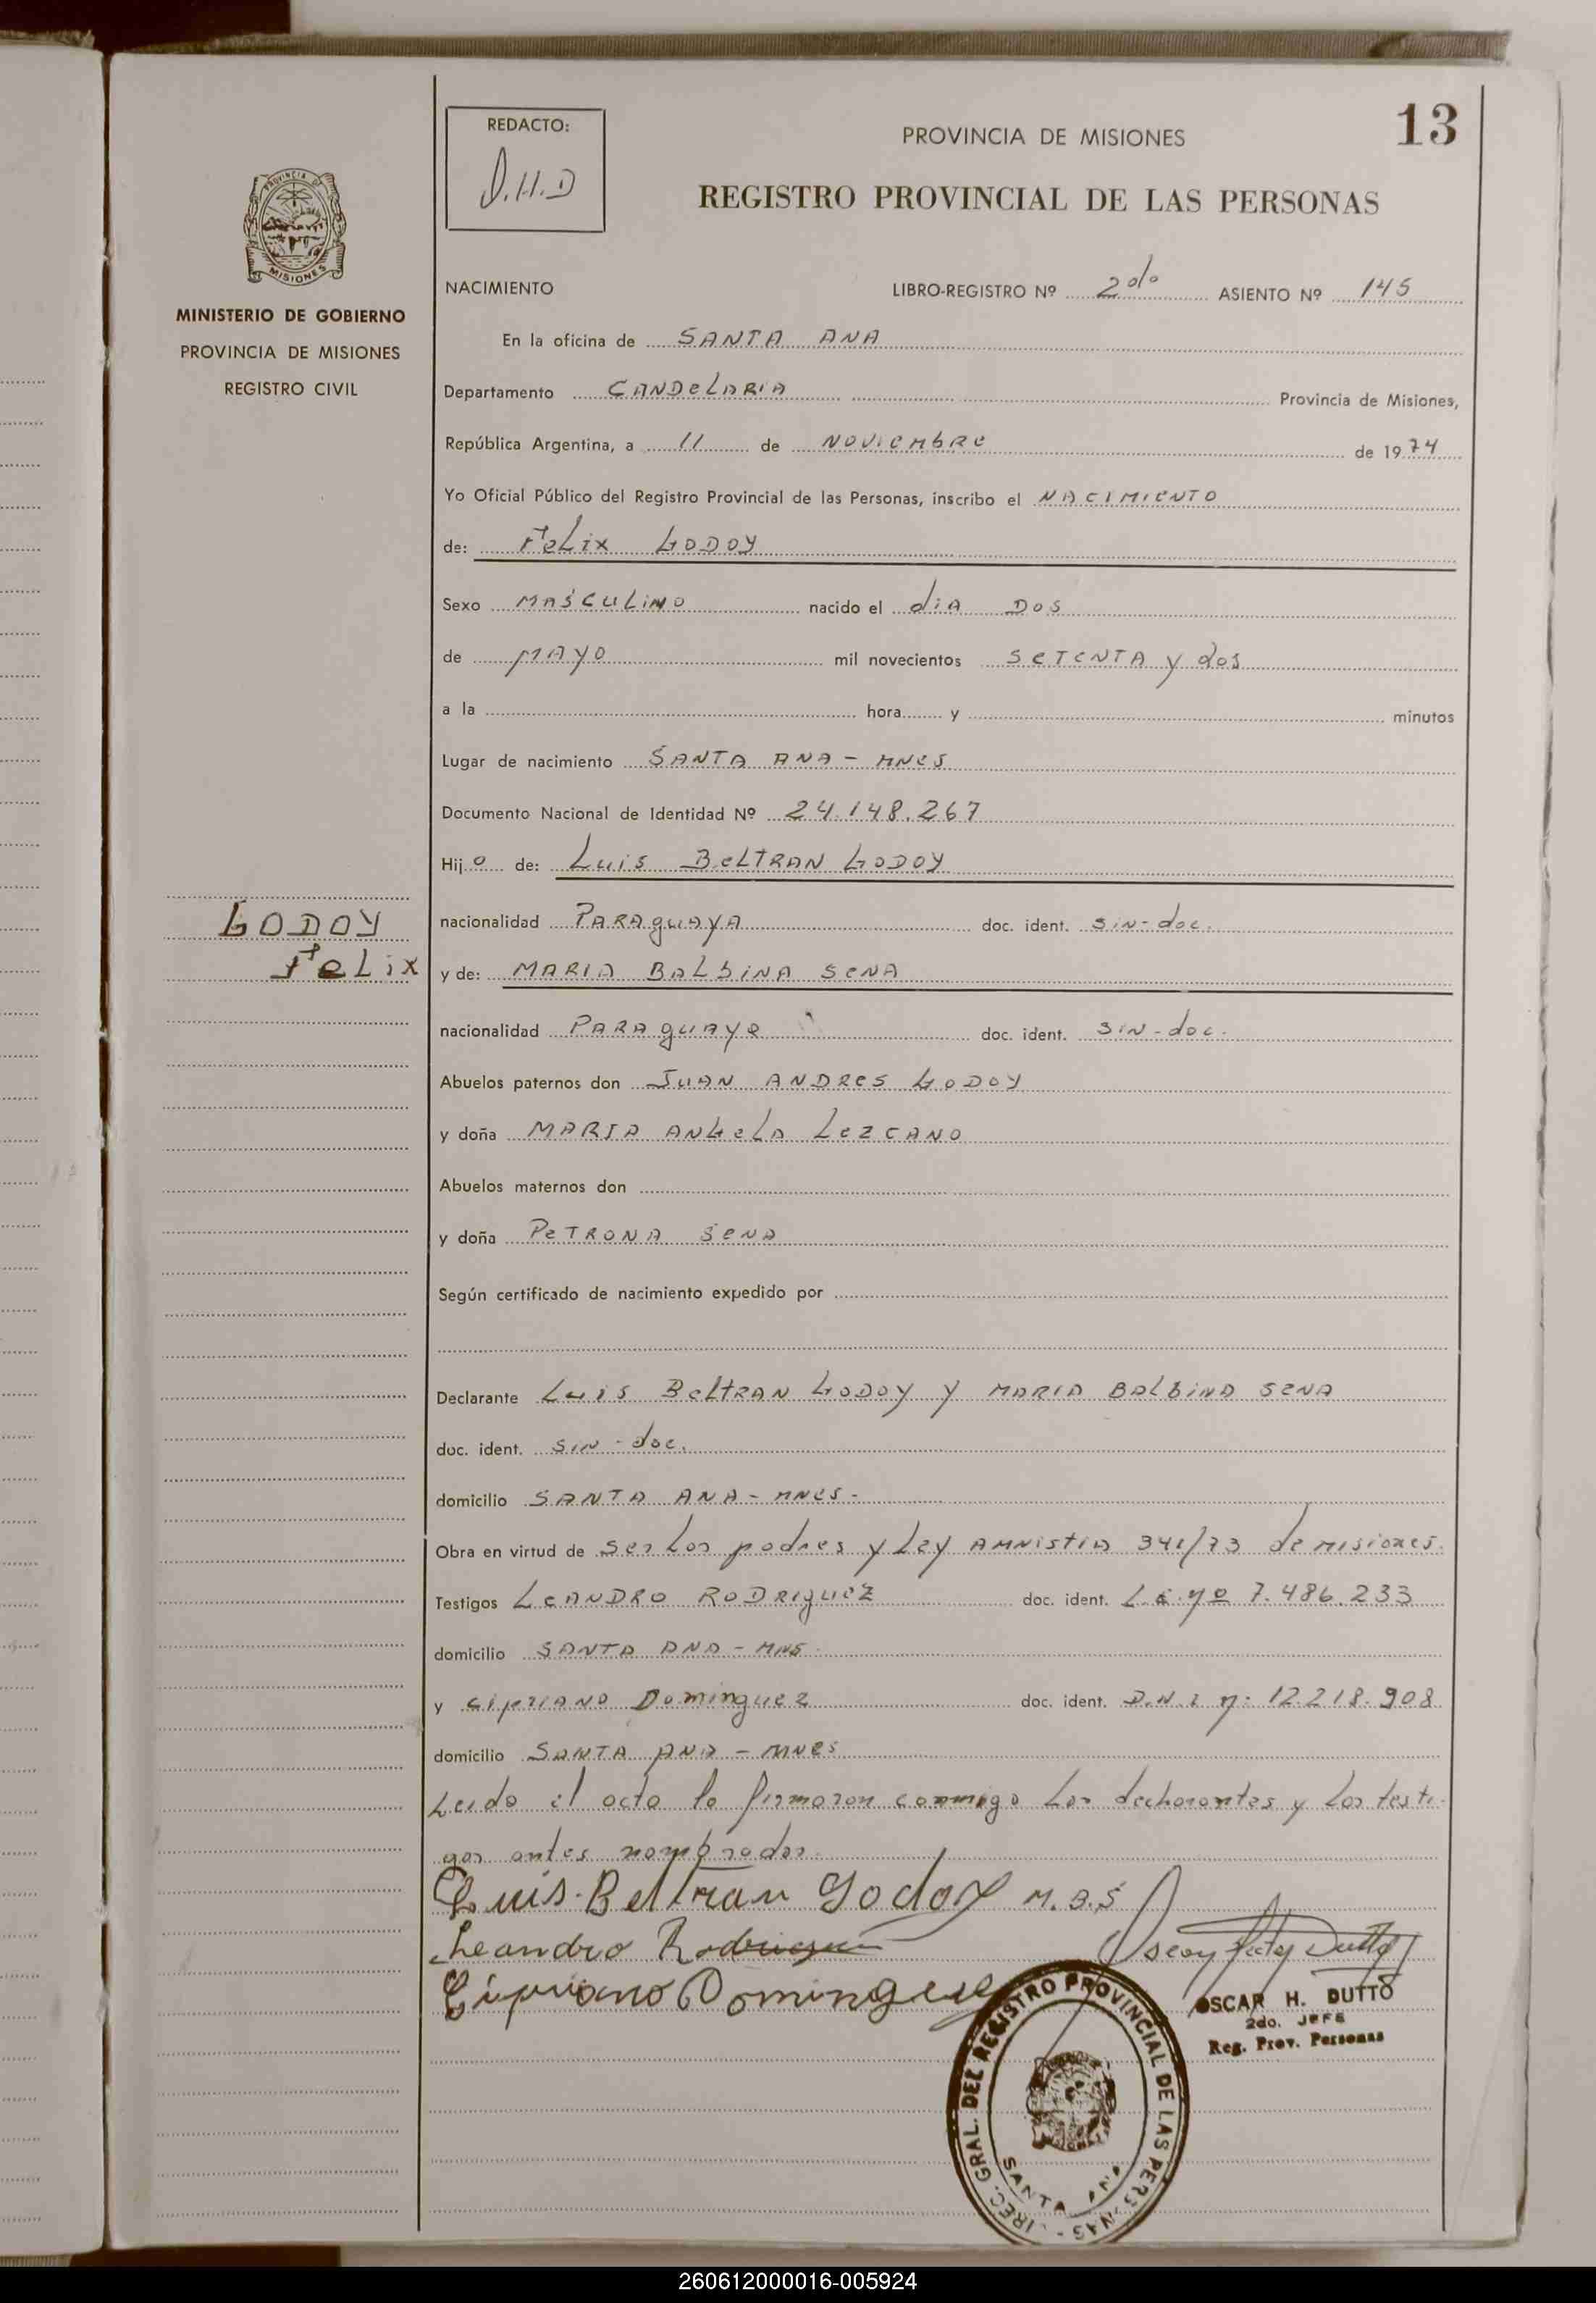 13
REDACTO:
O.H.D
PROVINCIA DE MISIONES
REGISTRO PROVINCIAL DE LAS PERSONAS
PROVINCIA DE
MISIONES
MINISTERIO DE GOBIERNO
PROVINCIA DE MISIONES
REGISTRO CIVIL
NACIMIENTO LIBRO-REGISTRO Nº 2do ASIENTO Nº 145
En la oficina de SANTA ANA
Departamento CANDELARIA Provincia de Misiones,
República Argentina, a 11 de NOVIEMBRE de 1974
Yo Oficial Público del Registro Provincial de las Personas, inscribo el NACIMIENTO
de: FELIX GODOY
Sexo MASCULINO nacido el dIA DOS
de MAYO mil novecientos SETENTA y dos
a la hora y minutos
Lugar de nacimiento SANTA ANA - MNES
Documento Nacional de Identidad Nº 24.148.267
Hijo de: LUIS BELTRAN GODOY
nacionalidad PARAguAyA doc. ident. SIN-doc.
GODOY
FELIX
y de: MARIA BALBINA SENA
nacionalidad PARAguAyA doc. ident. SIN-doc.
Abuelos paternos don JUAN ANDRES GODOY
y doña MARIA ANGELA LEZCANO
Abuelos maternos don
y doña PETRONA SENA
Según certificado de nacimiento expedido por
Declarante LUIS BELTRAN GODOY y MARIA BALBINA SENA
doc. ident. SIN-doc.
domicilio SANTA ANA - MNES-
Obra en virtud de ser los padres y Ley AMNISTIA 341/73 de misiones.
Testigos LEANDRO RODRIGUEZ doc. ident. L.E. nº 7.486.233
domicilio SANTA ANA - MNS.
y CIPRIANO DOMINGUEZ doc. ident. D.N.I n: 12.218.908
domicilio SANTA ANA - MNES
Leido el acta la firmaron conmigo los declarantes y los testi-
gos antes nombrados.
Luis Beltran Godoy M.B.S
Leandro Rodriguez
Cipriano Domingues
OSCAR H. DUTTO
2do. JEFE
Reg. Prov. Personas
DIREC. GRAL. DEL REGISTRO PROVINCIAL DE LAS PERSONAS
SANTA ANA
260612000016-005924